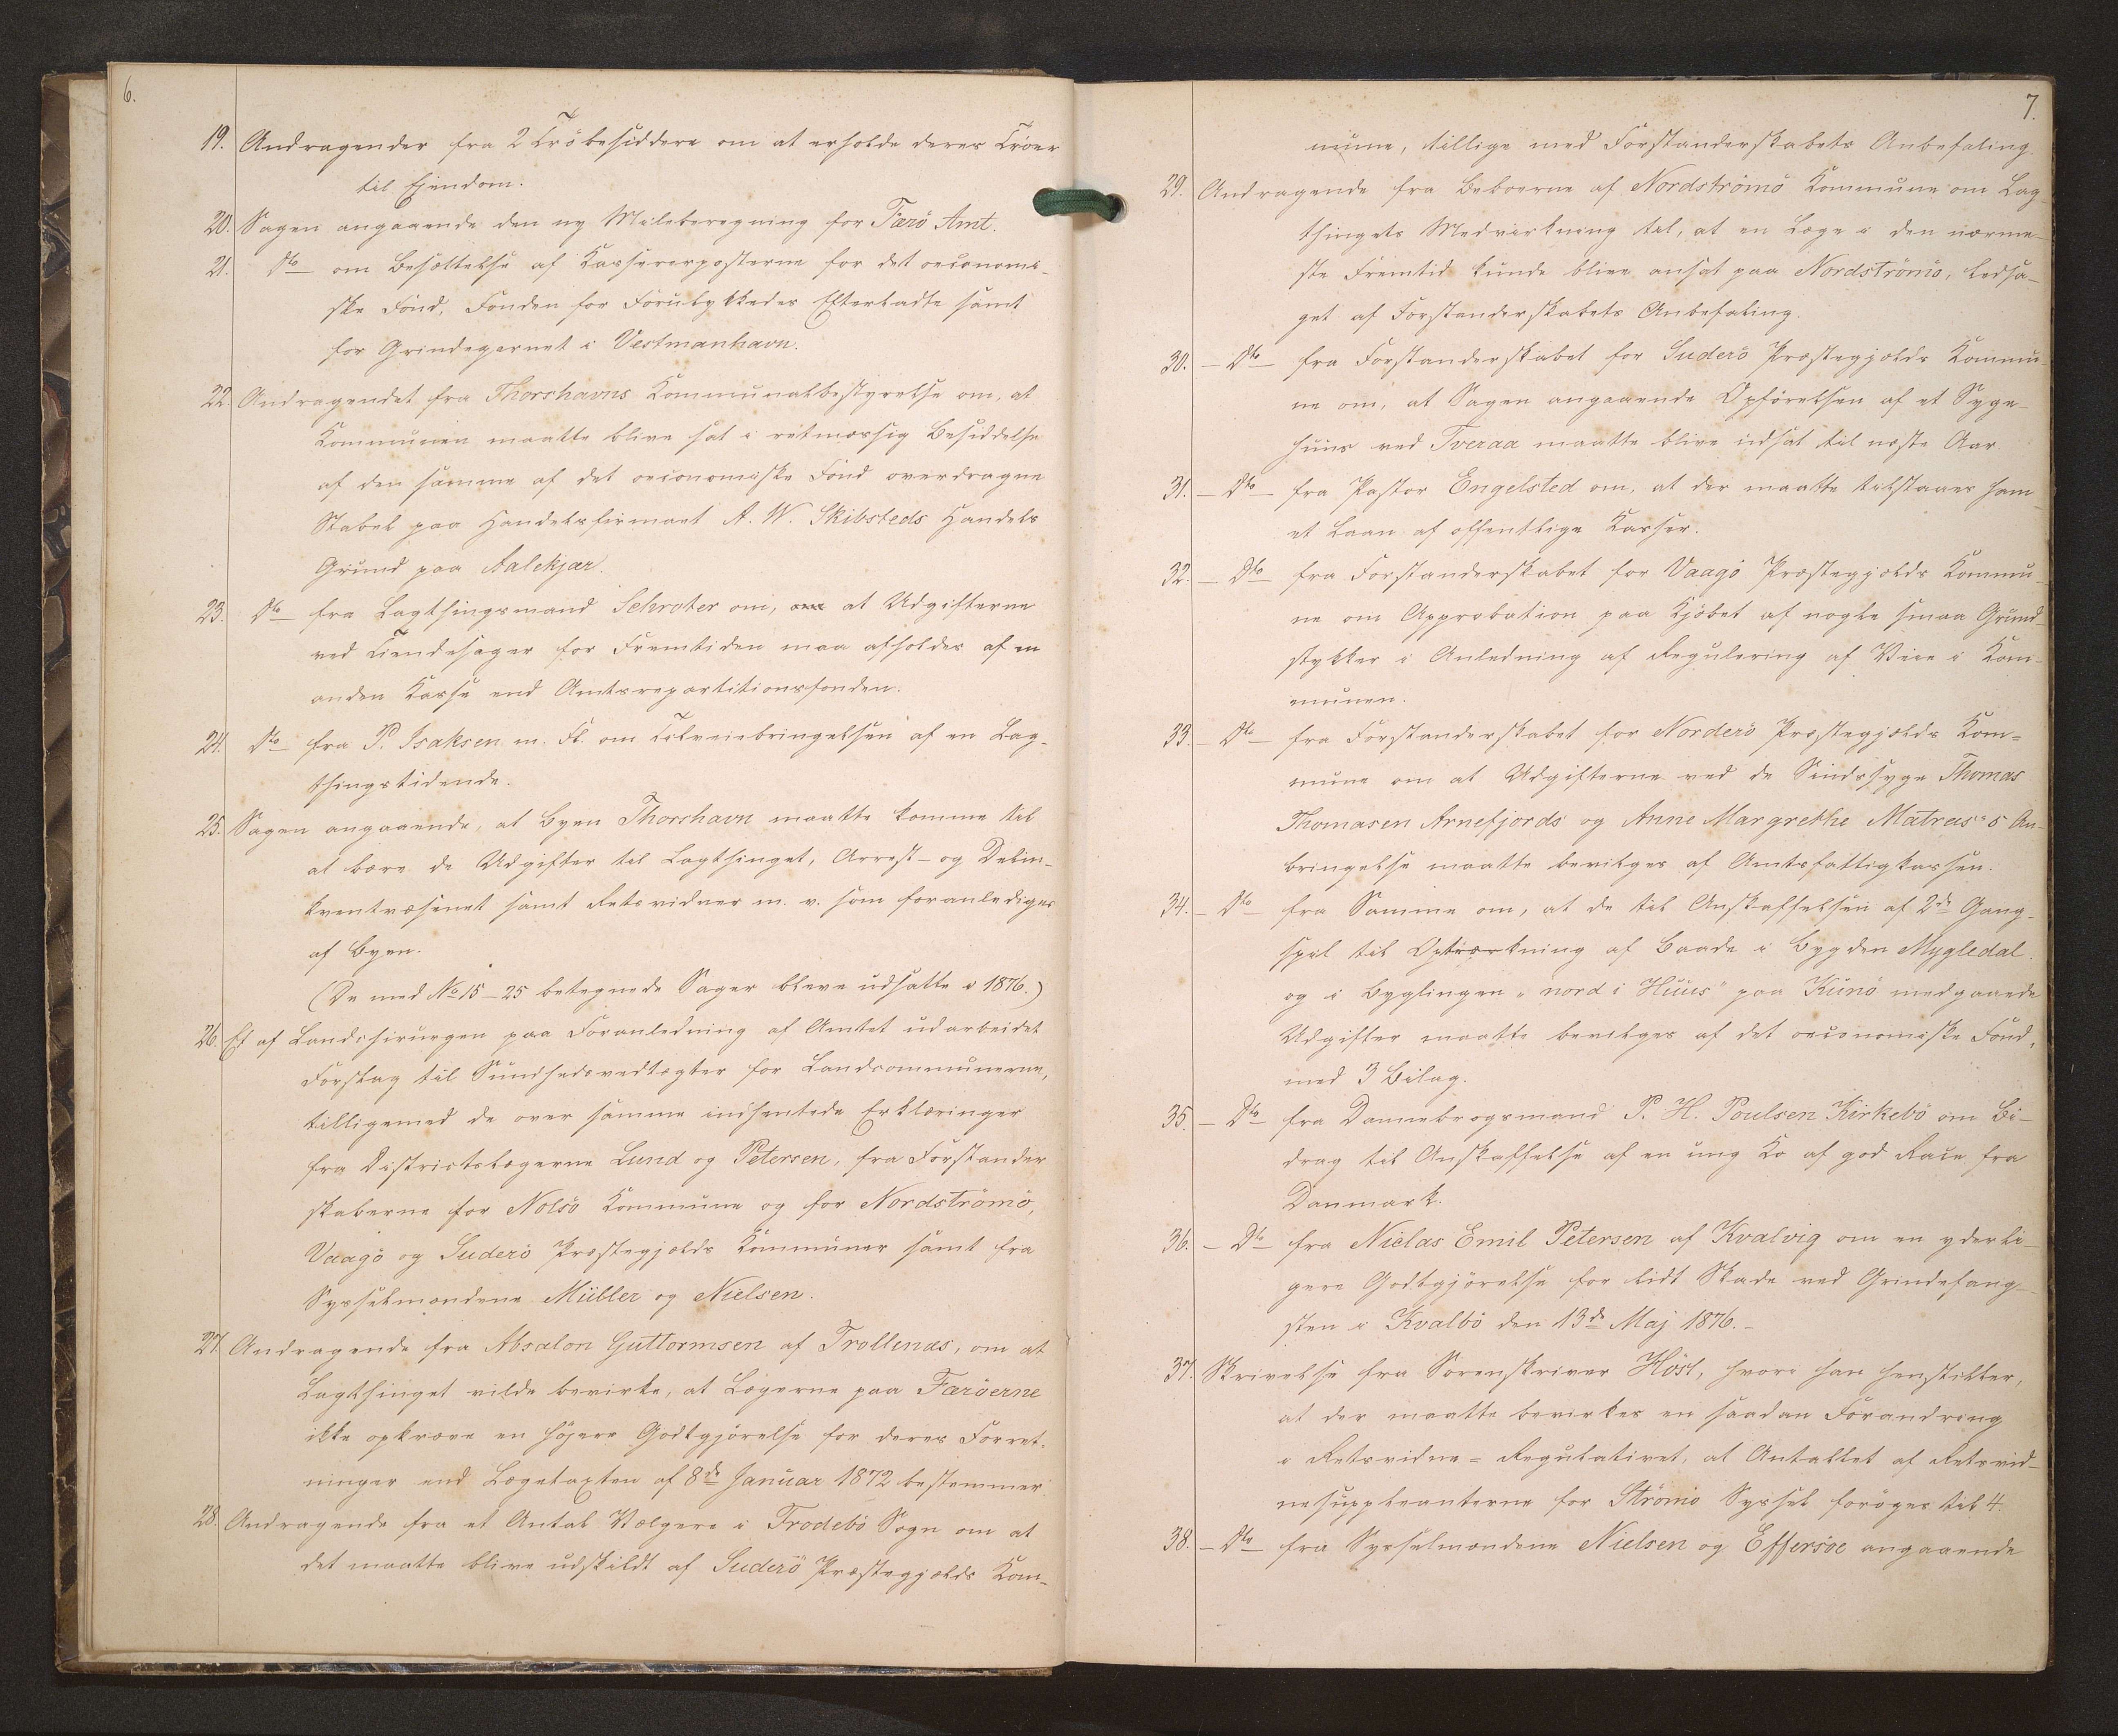 6.
19. Andragender fra 2 Tröbesiddere om at erholde deres Tröer
til Ejendom.
20. Sagen angaaende den ny Mileberegning for Færö Amt.
21. Do om Besættelse af Kassererposterne for det oeconomi-
ske Fond, Fonden for Forulykkedes Efterladte samt
for Grindegarnet i Vestmanhavn.
22. Andragendet fra Thorshavns Kommunalbestyrelse om, at
Kommunen maatte blive sat i retmæssig Besiddelse
af den samme af det oeconomiske Fond overdragne
Stabel paa Handelsfirmaet A. W. Skibsteds Handels
Grund paa Aalekjær.
23. Do fra Lagthingsmand Schrøter om, om at Udgifterne
ved Tiendesager for Fremtiden maa afholdes af en
anden Kasse end Amtsrepartitionsfonden.
24. Do fra P. Isaksen m. Fl. om Tilveiebringelsen af en Lag-
thingstidende.
25. Sagen angaaende, at Byen Thorshavn maatte komme til
at bære de Udgifter til Lagthinget, Arrest- og Delin-
kventvæsenet samt Retsvidner m. v. som foranlediges
af Byen.
(De med No 15-25 betegnede Sager bleve udsatte i 1876.)
26. Et af Landchirurgen paa Foranledning af Amtet udarbeidet
Forslag til Sundhedsvedtægter for Landcommunerne,
tilligemed de over samme indhentede Erklæringer
fra Districtslægerne Lund og Petersen, fra Forstander
skaberne for Nolsö Kommune og for Nordströmö,
Vaagö og Suderö Præstegjelds Kommuner samt fra
Sysselmændene Müller og Nielsen.
27. Andragende fra Absalon Guttormsen af Trollenæs, om at
Lagthinget vilde bevirke, at Lægerne paa Færöerne
ikke opkræve en höjere Godtgjörelse for deres Forret-
ninger end Lægetaxten af 8de Januar 1872 bestemmer.
28. Andragende fra et Antal Vælgere i Frodebö Sogn om at
det maatte blive udskildt af Suderö Præstegjelds Kom-
7.
mune, tillige med Forstanderskabets Anbefaling.
29. Andragende fra Beboerne af Nordströmö Kommune om Lag
thingets Medvirkning til, at en Læge i den nærme-
ste Fremtid kunde blive ansat paa Nordströmö, ledsa-
get af Forstanderskabets Anbefaling.
30. - Do - fra Forstanderskabet for Suderö Præstegjelds Kommu-
ne om, at Sagen angaaende Opförelsen af et Syge-
huus ved Tveraa maatte blive udsat til næste Aar.
31. - Do - fra Pastor Engelsted om, at der maatte tilstaaes ham
et Laan af offentlige Kasser.
32. - Do - fra Forstanderskabet for Vaagö Præstegjelds Kommu-
ne om Approbation paa Kjöbet af nogle smaa Grund-
stykker i Anledning af Regulering af Veie i Kom-
munen.
33. - Do - fra Forstanderskabet for Norderö Præstegjelds Kom-
mune om at Udgifterne ved de Sindssyge Thomas
Thomasen Arnefjords og Anne Margrethe Matras's An-
bringelse maatte bevilges af Amtsfattigkassen.
34. - Do - fra Samme om, at de til Anskaffelsen af 2de Gang-
spil til Optrækning af Baade i Bygden Mygledal
og i Byglingen "nord i Huus" paa Kunö medgaaede
Udgifter maatte bevilges af det oeconomiske Fond,
med 3 Bilag.
35. - Do fra Dannebrogsmand P. H. Poulsen Kirkebö om Bi-
drag til Anskaffelse af en ung Ko af god Race fra
Danmark.
36. - Do - fra Niclas Emil Petersen af Kvalvig om en yderli-
gere Godtgjörelse for lidt Skade ved Grindefang-
sten i Kvalbö den 13de Maj 1876.-
37. Skrivelse fra Sorenskriver Höst, hvori han henstiller,
at der maatte bevirkes en saadan Forandring
i Retsvidne-Regulativet, at Antallet af Retsvid-
nesuppleanterne for Strömö Syssel foröges til 4.
38. - Do - fra Sysselmændene Nielsen og Effersöe angaaende